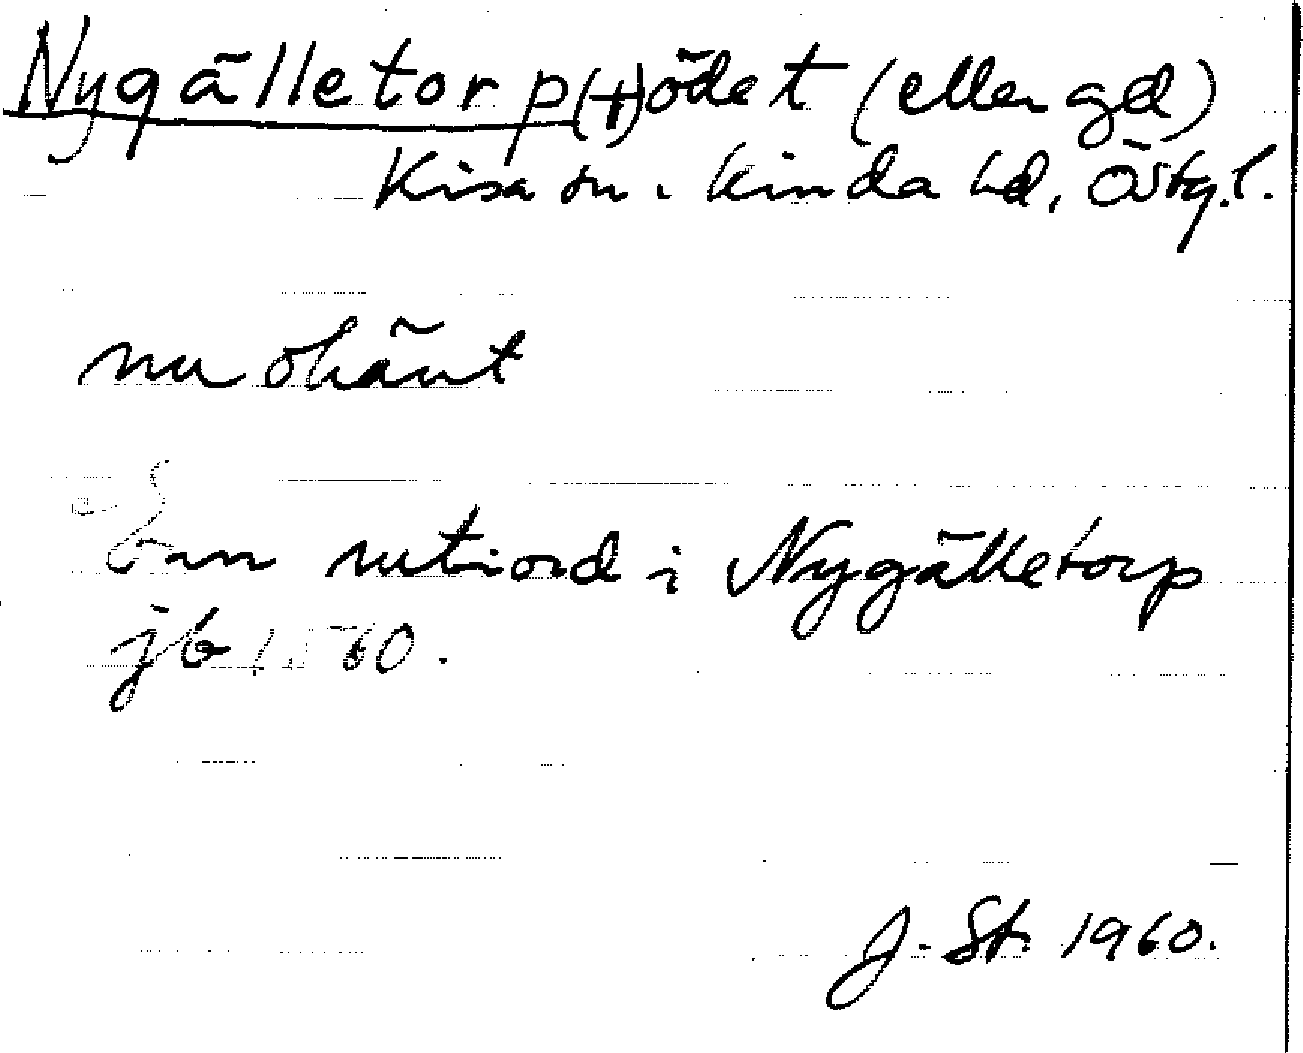 Nygälletorp (+) ödet (eller gd)
Kisa sn. Kinda hd, Östg.l.
nu okänt
En utiord i Nygälletorp
jb 1560.
J. St. 1960.